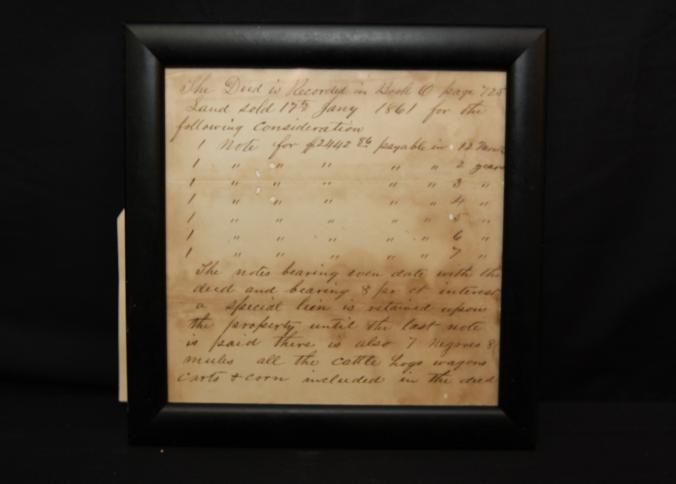 The Deed is Recorded in Book O page 725
Land sold 17th Jany 1861 for the
following Consideration
1 Note for $2442 86 payable in 12 Mon
1 " " " " " 2 years
1 " " " " " 3 "
1 " " " " " 4 "
1 " " " " " 5 "
1 " " " " " 6 "
1 " " " " " 7 "
The notes bearing even date with the
deed and bearing 8 pr ct interest
a special lien is retained upon
the property until the last note
is paid there is also 7 Negroes 8
mules all the cattle hogs wagons
Carts & corn included in the deed